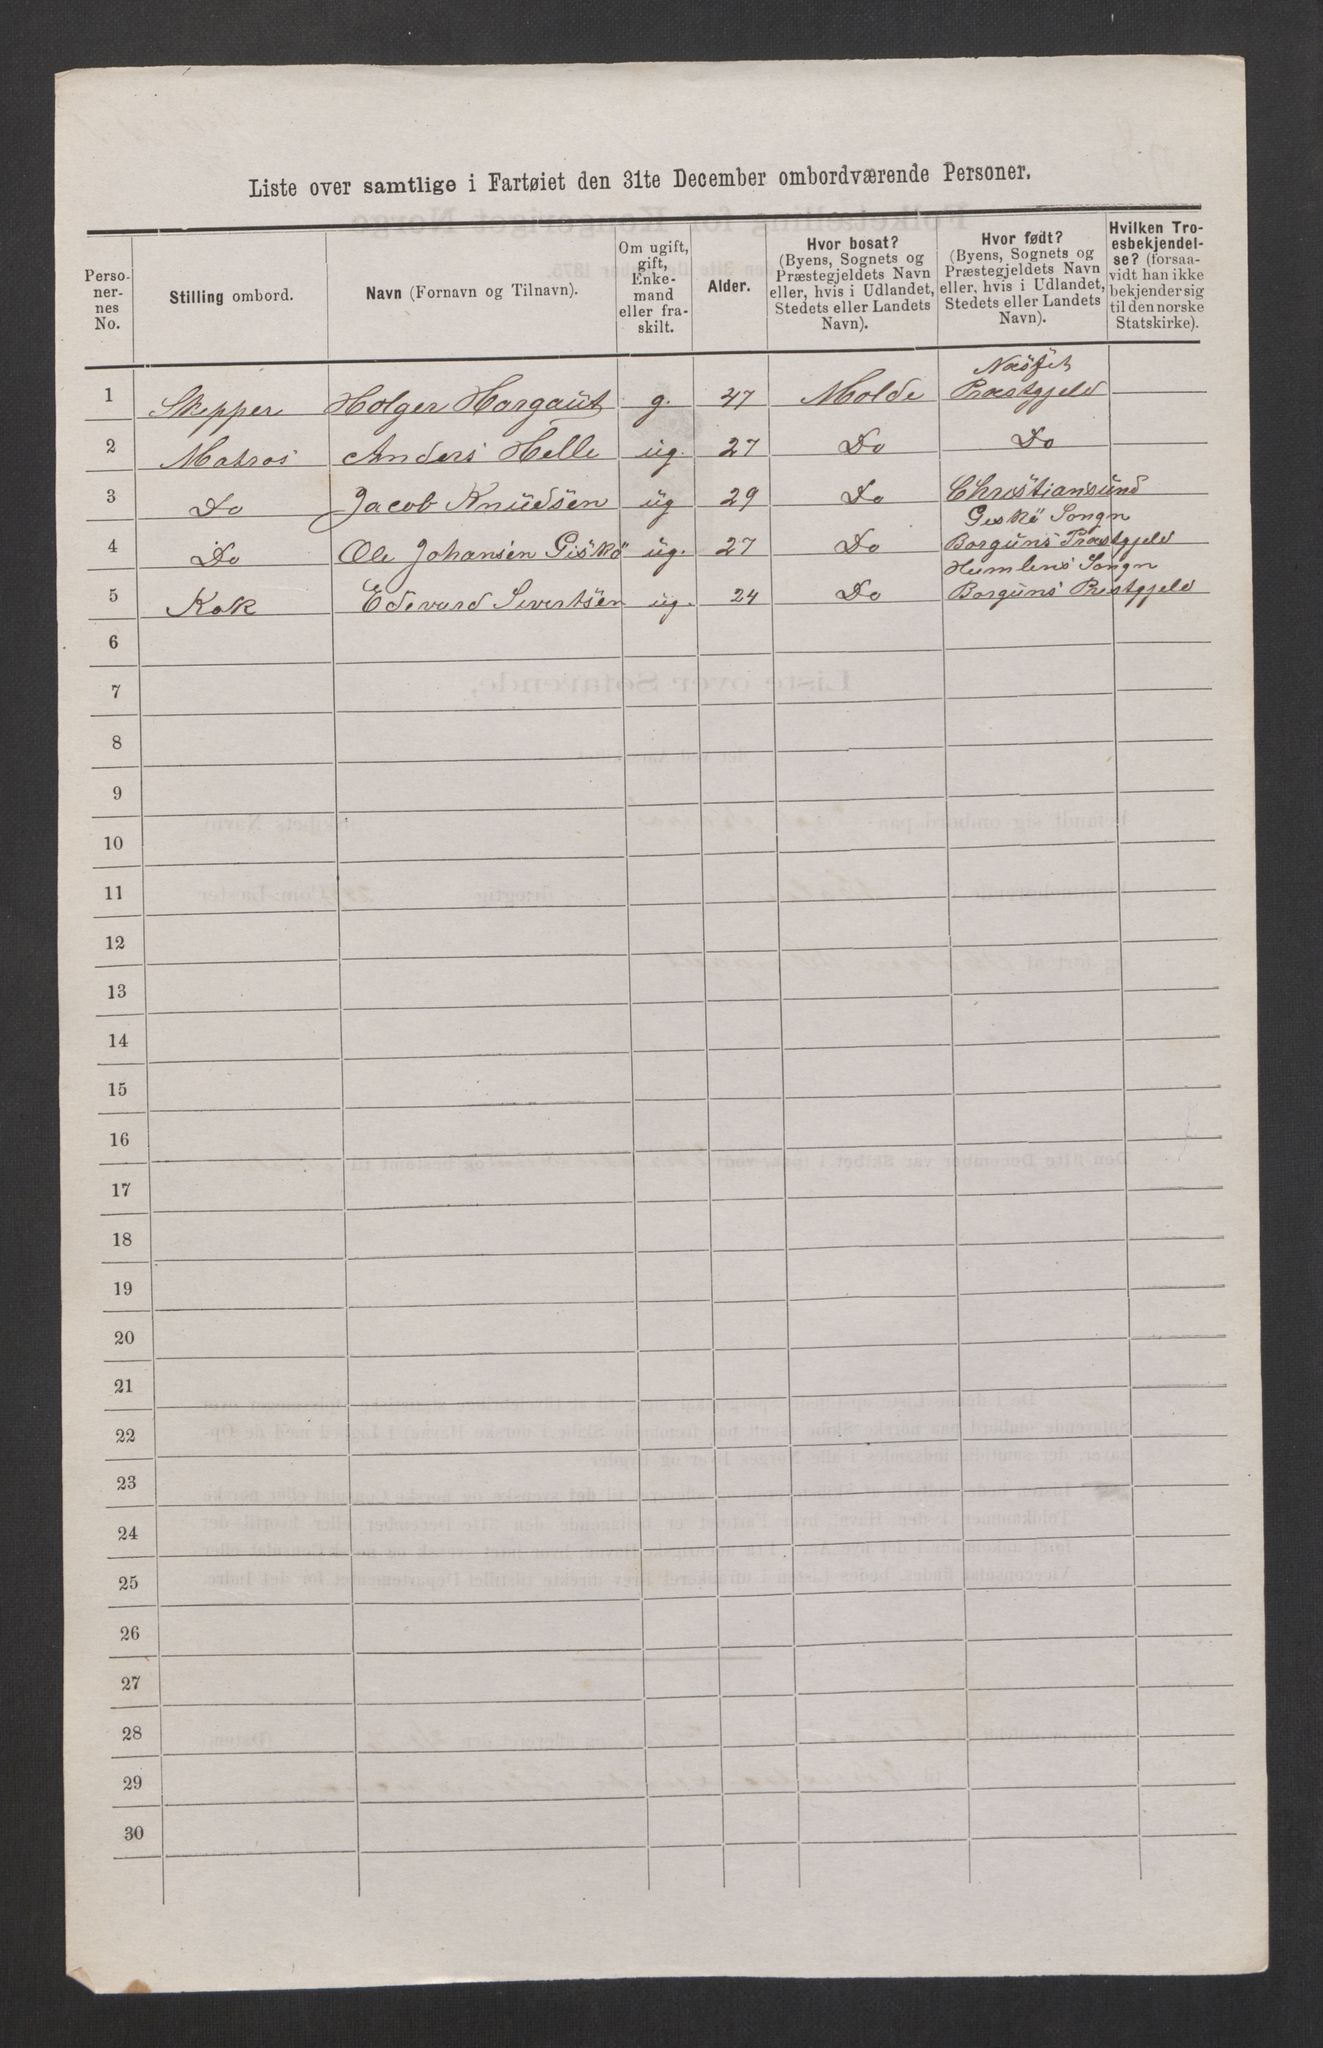 Liste over samtlige i Fartøiet den 31te December ombordværende Personer.
Perso-
ner-
nes
No.
Stilling ombord.
Navn (Fornavn og Tilnavn).
Om ugift,
gift,
Enke-
mand
eller fra-
skilt.
Alder.
Hvor bosat?
(Byens, Sognets og
Præstegjeldets Navn
eller, hvis i Udlandet,
Stedets eller Landets
Navn).
Hvor født?
(Byens, Sognets og
Præstegjeldets Navn
eller, hvis i Udlandet,
Stedets eller Landets
Navn).
Hvilken Tro-
esbekjendel-
se? (forsaa-
vidt han ikke
bekjender sig
til den norske
Statskirke).
Næsjet
1 Skipper Holger Hargaut g. 47 Molde Præstgjeld
2 Matros Anders Helle ug. 27 Do Do
3 Do Jacob Knudsen ug 29 Do Christiansund
Geskö Songn
4 Do Ole Johansen Giskö ug. 27 Do Borguns Præstgjeld
Humlens Songn
5 Kok Edevard Sivertsen ug. 24 Do Borguns Prestgjeld
6
7
8
9
10
11
12
13
14
15
16
17
18
19
20
21
22
23
24
25
26
27
28
29
30